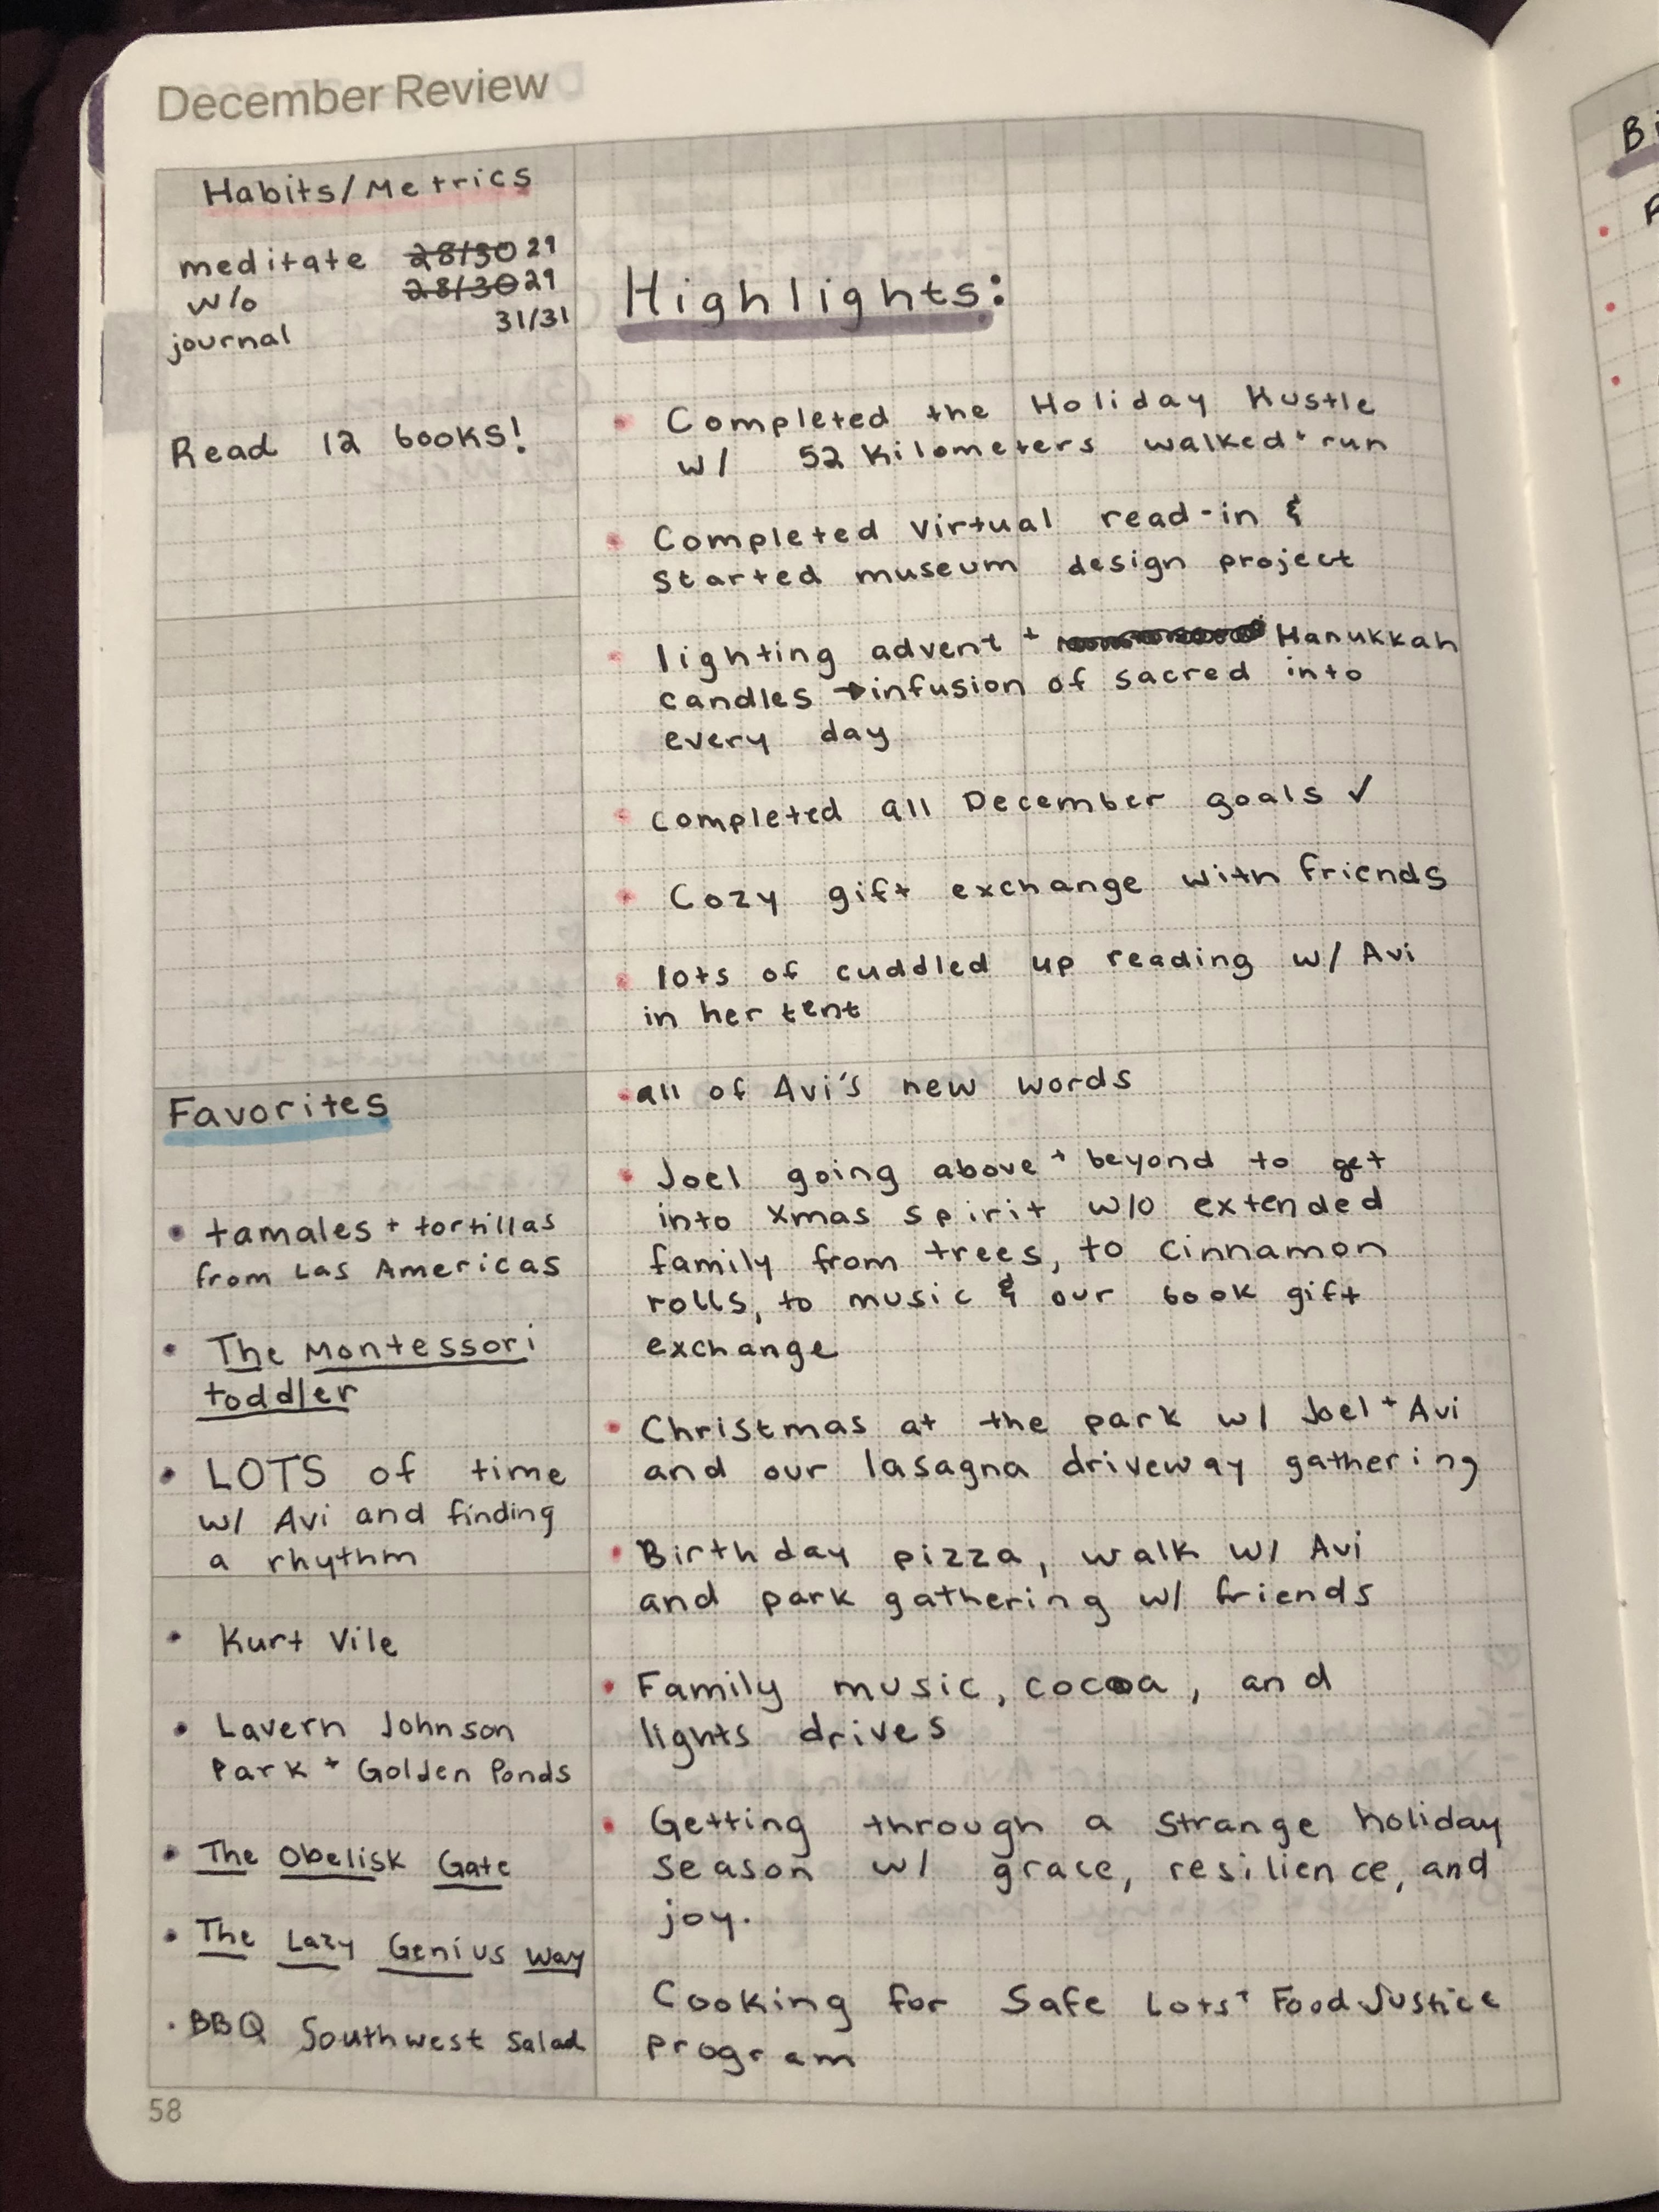 December Review
Habits/Metrics
meditate 28/30 29
w/o 28/30 29
journal 31/31
Read 12 books!
Favorites
• tamales + tortillas
from Las Americas
• The Montessori
toddler
• LOTS of time
w/ Avi and finding
a rhythm
• Kurt Vile
• Lavern Johnson
Park + Golden Ponds
• The Obelisk Gate
• The Lazy Genius Way
• BBQ Southwest Salad
58
Highlights:
• Completed the Holiday Hustle
w/ 52 Kilometers walked + run
• Completed virtual read-in &
started museum design project
• lighting advent + Hanukkah
candles → infusion of sacred into
every day
• completed all December goals ✓
• Cozy gift exchange with friends
• lots of cuddled up reading w/ Avi
in her tent
• all of Avi's new words
• Joel going above + beyond to get
into Xmas spirit w/o extended
family from trees, to cinnamon
rolls, to music & our book gift
exchange
• Christmas at the park w/ Joel + Avi
and our lasagna driveway gathering
• Birthday pizza, walk w/ Avi
and park gathering w/ friends
• Family music, cocoa, and
lights drives
• Getting through a strange holiday
season w/ grace, resilience, and
joy.
Cooking for Safe Lots + Food Justice
program